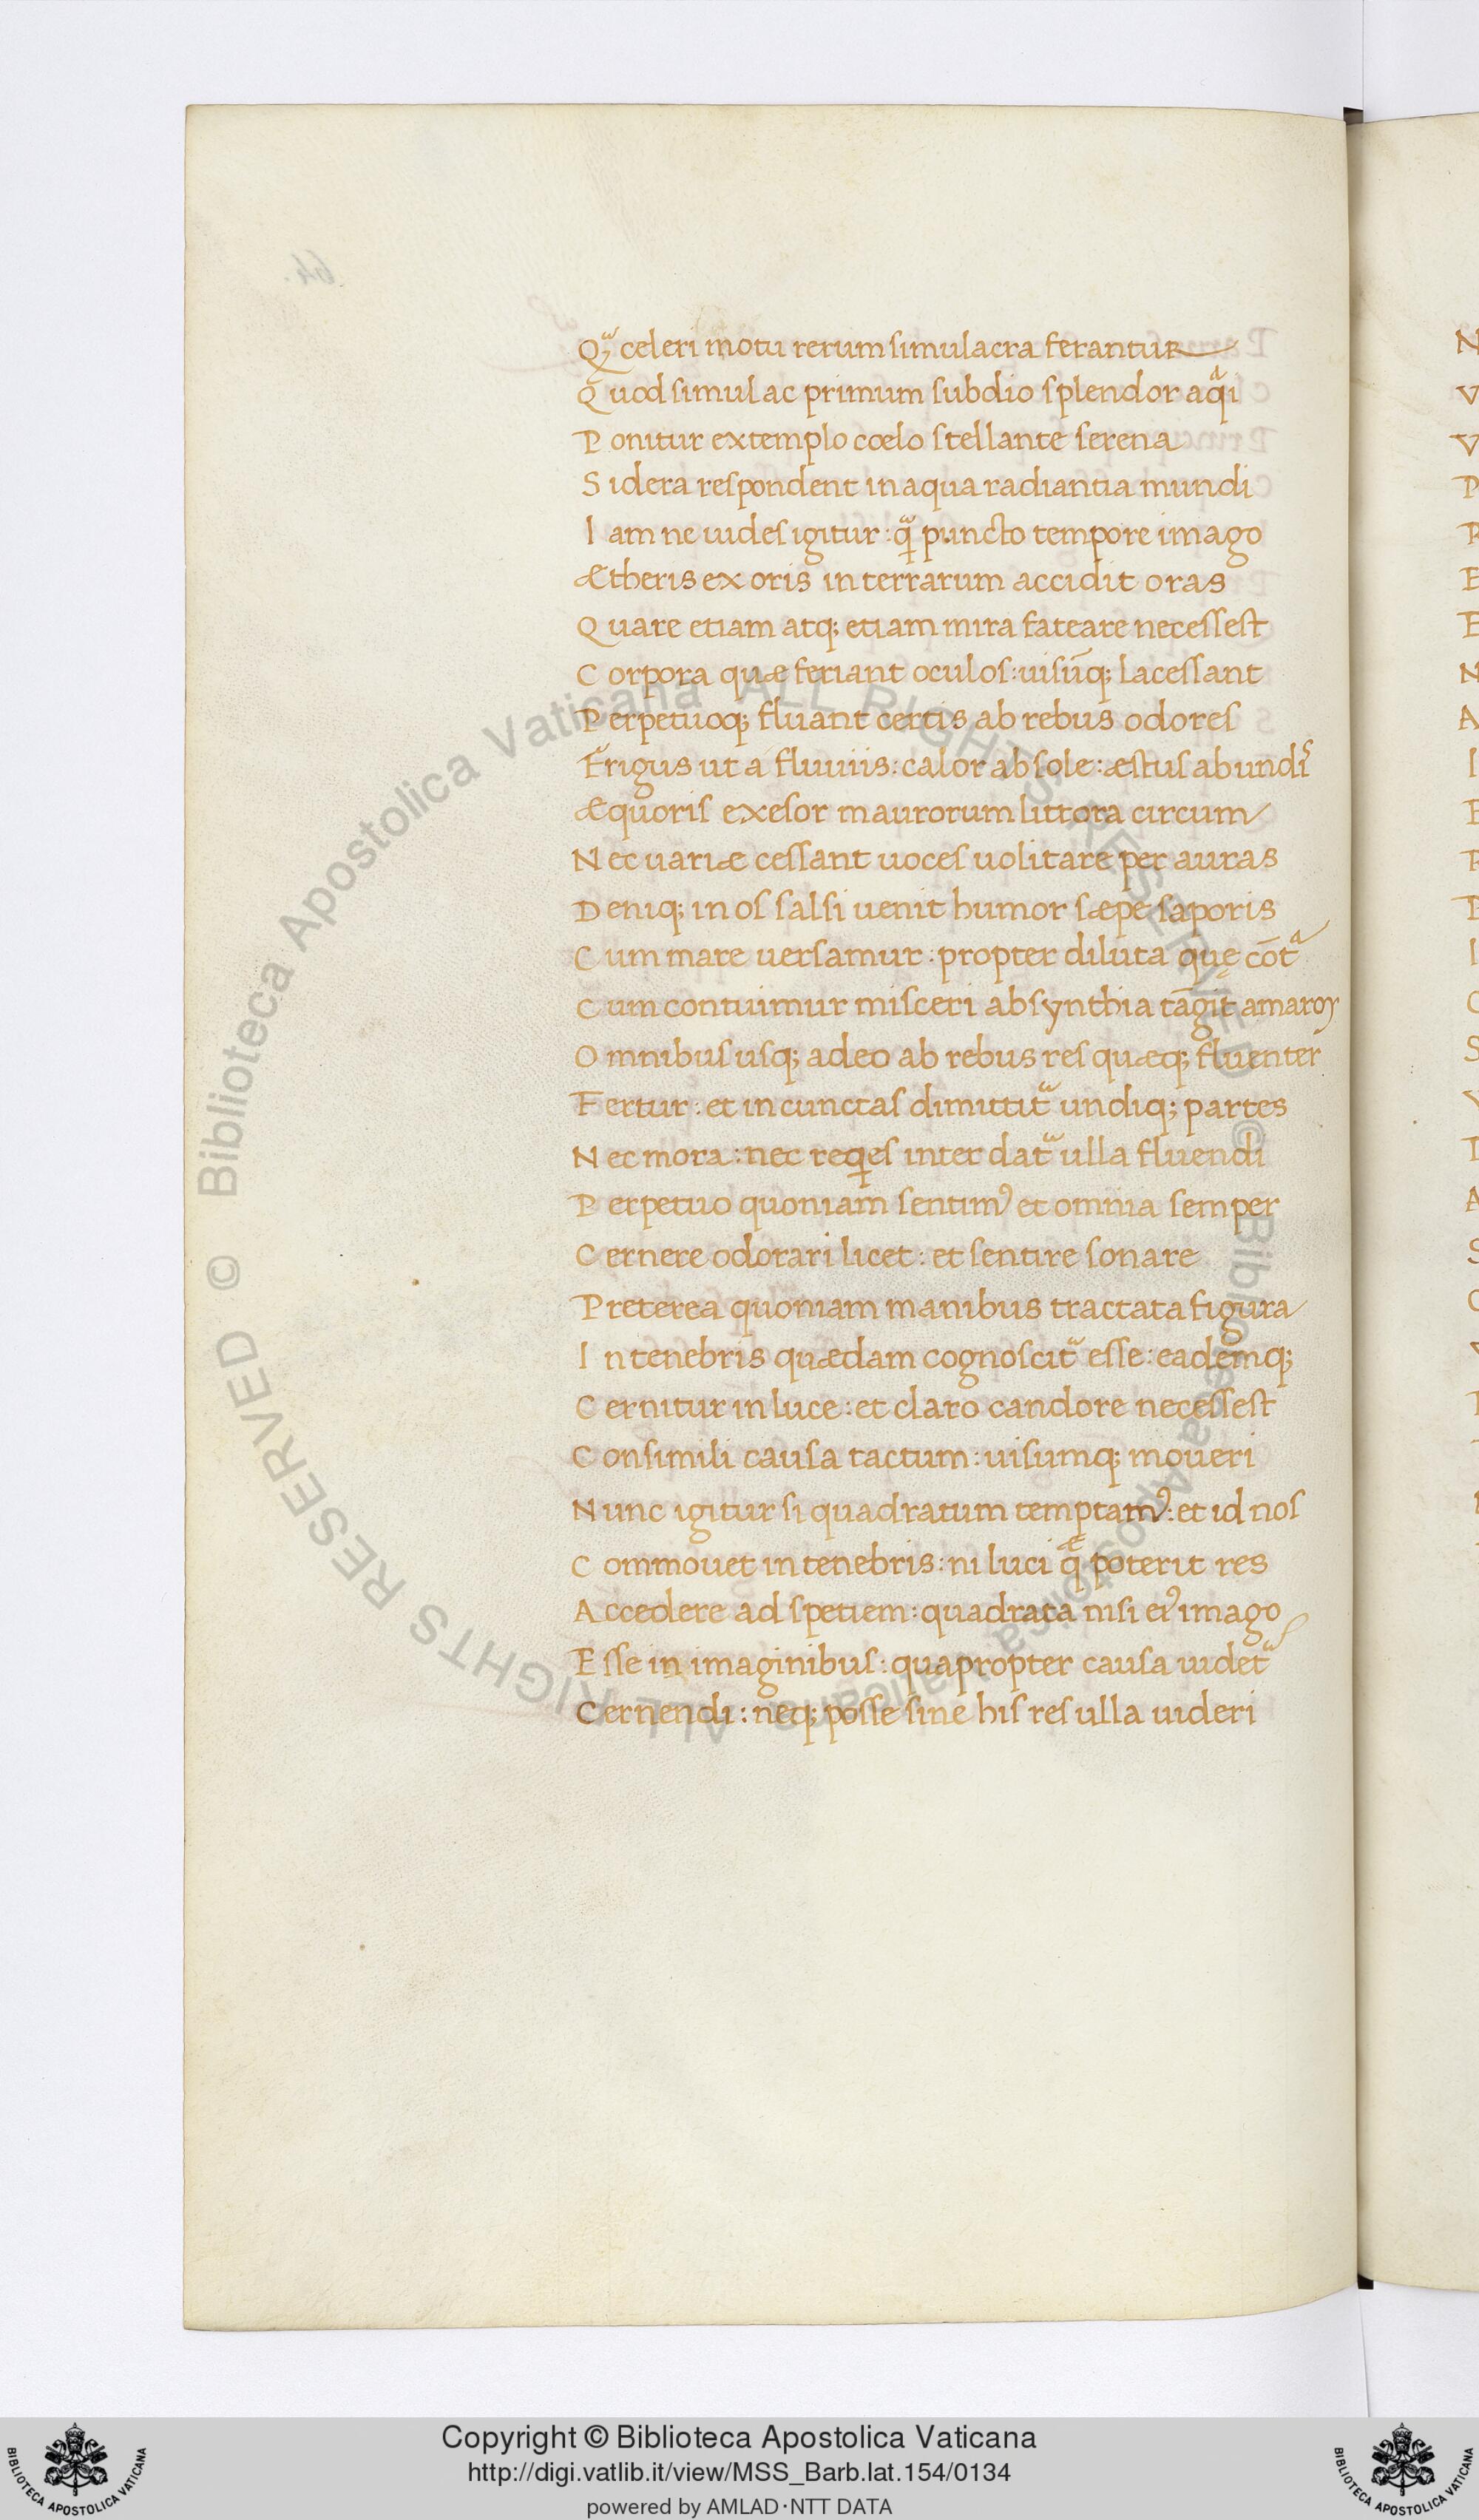 Qꝫᷓ celeri motu rerum simulacra ferantur
Quod simul ac primum subdio splendor aqͣi
Ponitur extemplo cœlo stellante serena
Sidera respondent in aqua radiantia mundi
Iam ne uides igitur: qᷓ puncto tempore imago
Ætheris ex oris in terrarum accidit oras
Quare etiam atq; etiam mira fateare necessest
Corpora quæ feriant oculos: uisūq; lacessant
Perpetuoq; fluant certis ab rebus odores
Frigus ut a fluuiis: calor ab sole: æstus ab undis
Æquoris exesor maurorum littora circum
Nec uariæ cessant uoces uolitare per auras
Deniq; in os salsi uenit humor sæpe saporis
Cum mare uersamur: propter diluta que cōtᷓ
Cum contuimur misceri absynthia tāgit amaroꝝ
Omnibus usq; adeo ab rebus res quæq; fluenter
Fertur: et in cunctas dimittitᷓ undiq; partes
Nec mora: nec reqͥes inter datᷓ ulla fluendi
Perpetuo quoniam sentimꝰ et omnia semper
Cernere odorari licet: et sentire sonare
Preterea quoniam manibus tractata figura
In tenebris quædam cognoscitᷓ esse: eademq;
Cernitur in luce: et claro candore necessest
Consimili causa tactum: uisumq; moueri
Nunc igitur si quadratum temptamꝰ: et id nos
Commouet in tenebris: ni luci qᷔ poterit res
Accedere ad spetiem: quadrata nisi eiꝰ imago
Esse in imaginibus: quapropter causa uidetᷓ
Cernendi: neq; posse sine his res ulla uideri
64.
© Biblioteca Apostolica Vaticana ALL RIGHTS RESERVED
© Biblioteca Apostolica Vaticana ALL RIGHTS RESERVED
Copyright © Biblioteca Apostolica Vaticana
http://digi.vatlib.it/view/MSS_Barb.lat.154/0134
powered by AMLAD·NTT DATA
BIBLIOTECA APOSTOLICA VATICANA
BIBLIOTECA APOSTOLICA VATICANA